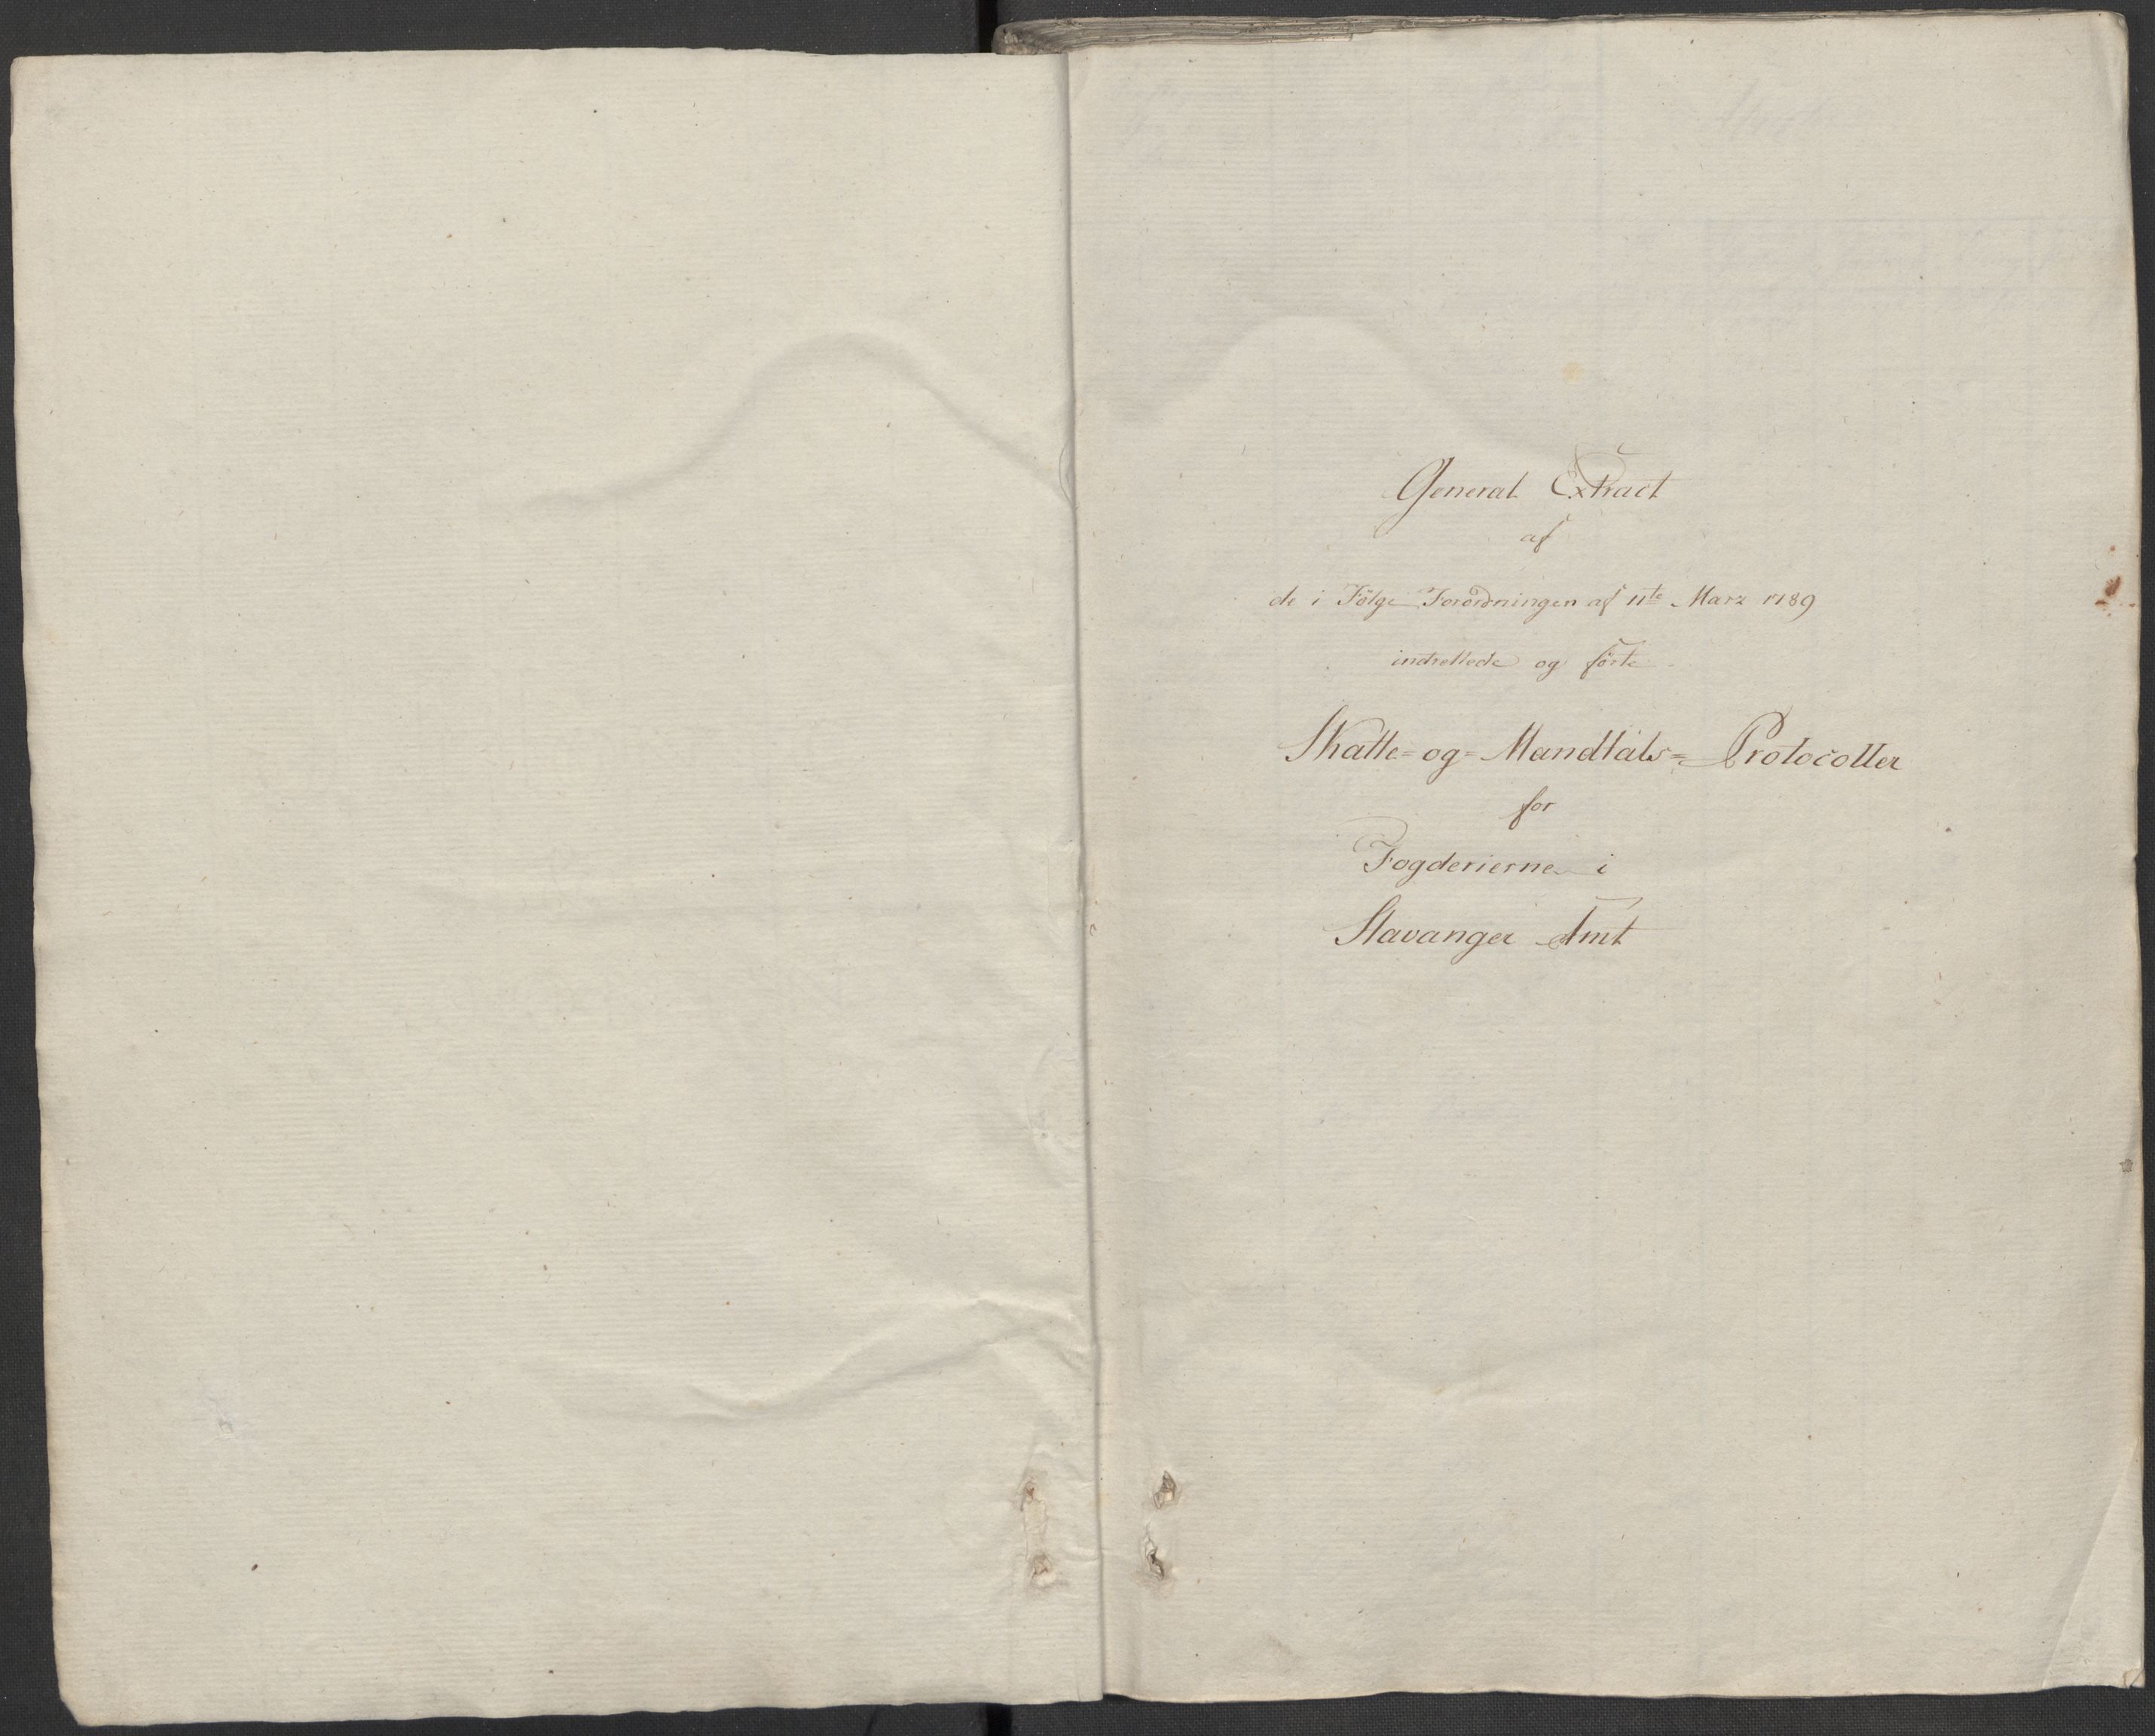 General Extract
af
de i Fölge Forordningen af 11te Marz 1789
indrettede og förte
Skatte=og=Mandtals=Protocoller
for
Fogderierne i
Stavanger Amt